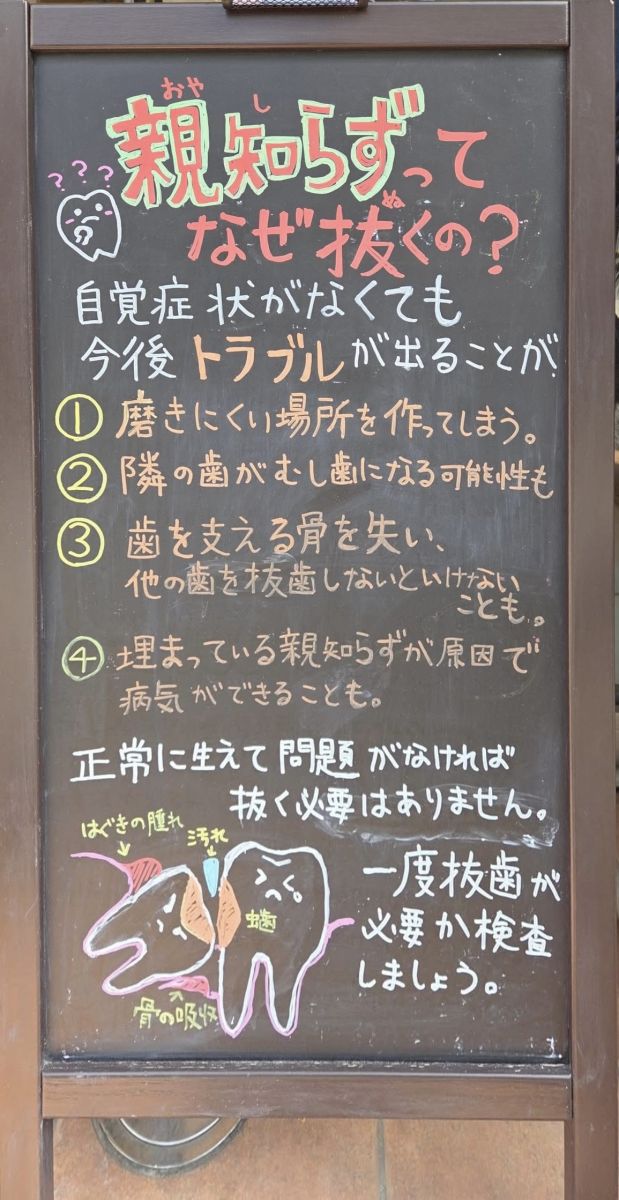 おや し
親知らずって
???
ぬ
なぜ抜くの?
自覚症状がなくても
今後トラブルが出ることが
① 磨きにくい場所を作ってしまう。
② 隣の歯がむし歯になる可能性も
③ 歯を支える骨を失い、
他の歯を抜歯しないといけない
ことも。
④ 埋まっている親知らずが原因で
病気ができることも。
正常に生えて問題がなければ
抜く必要はありません。
はぐきの腫れ
汚れ
一度抜歯が
必要か検査
しましょう。
骨の吸収